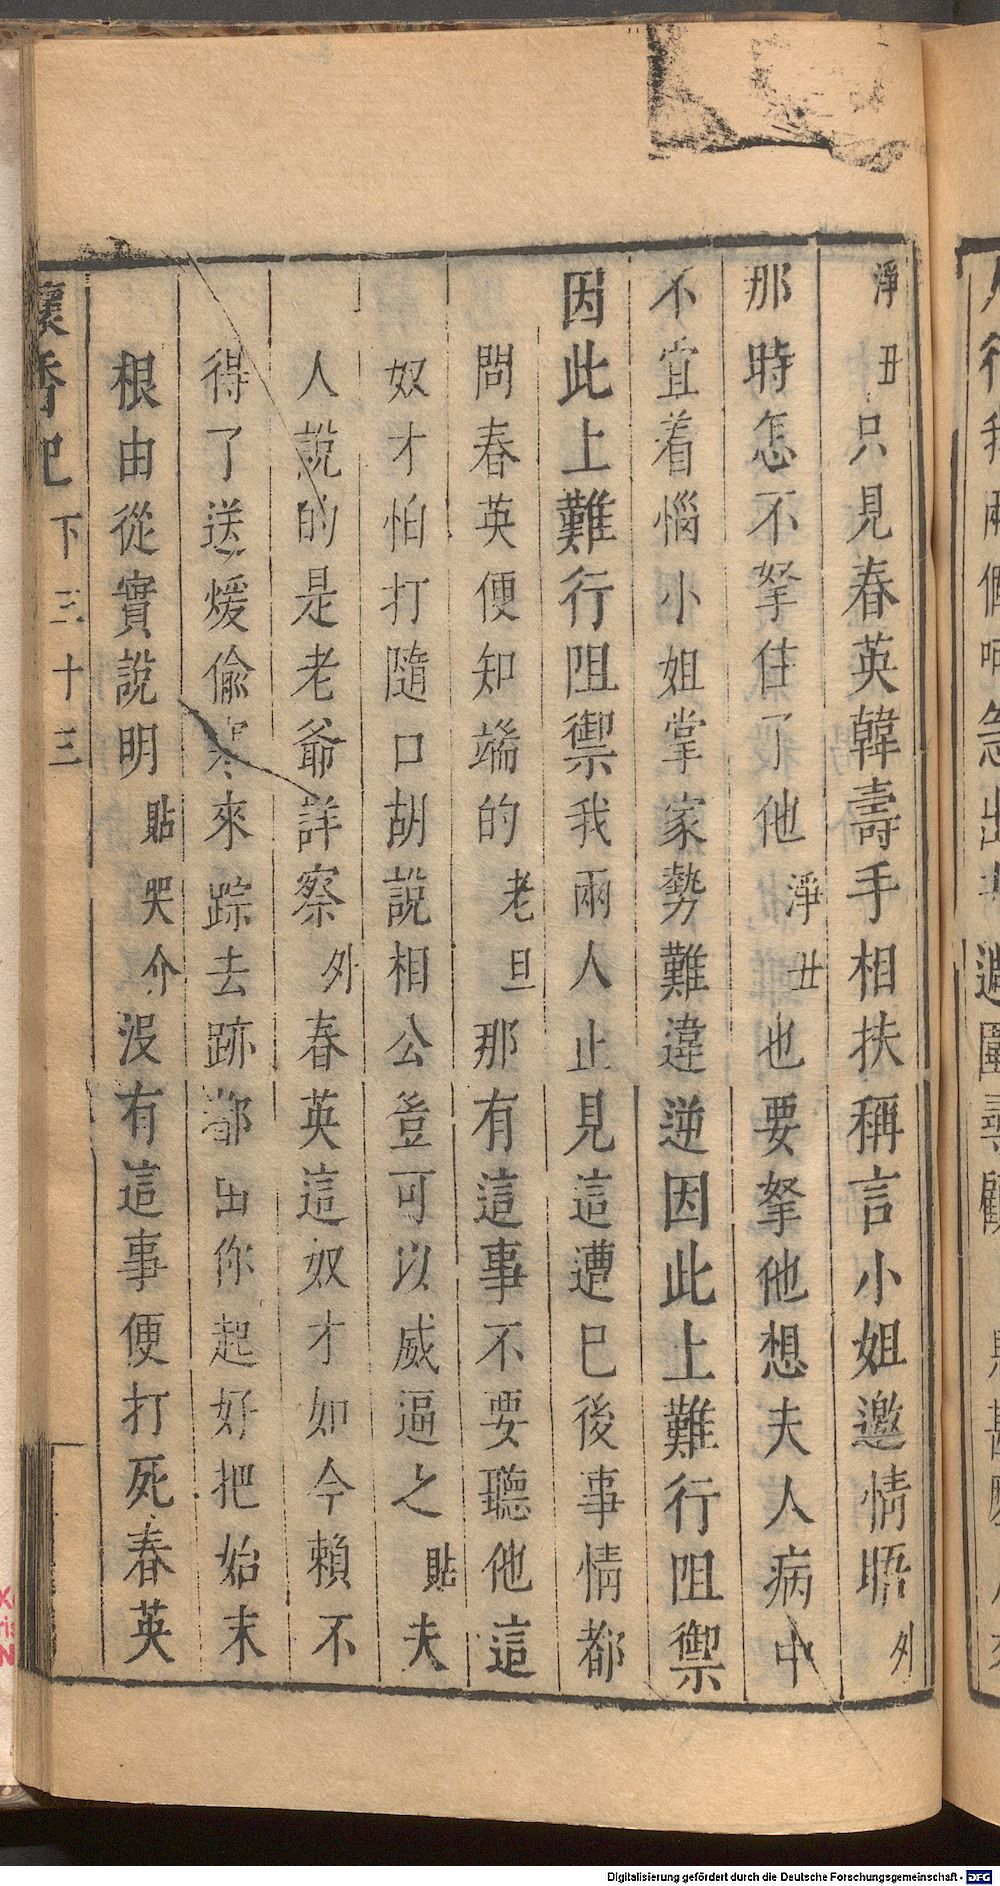 淨丑只見春英韓壽手相扶稱言小姐邀情晤外
那時怎不拏住了他淨丑也要拏他想夫人病中
不宜着惱小姐掌家勢難違逆因此上難行阻禦
因此上難行阻禦我兩人止見這遭已後事情都
問春英便知端的老旦那有這事不要聽他這
奴才怕打隨口胡說相公豈可以威逼之貼夫
人說的是老爺詳察外春英這奴才如今賴不
得了送煖偷寒來踪去跡都出你起好把始末
根由從實說明貼哭介没有這事便打死春英
懷香記 下 三十三
Digitalisierung gefördert durch die Deutsche Forschungsgemeinschaft - DFG